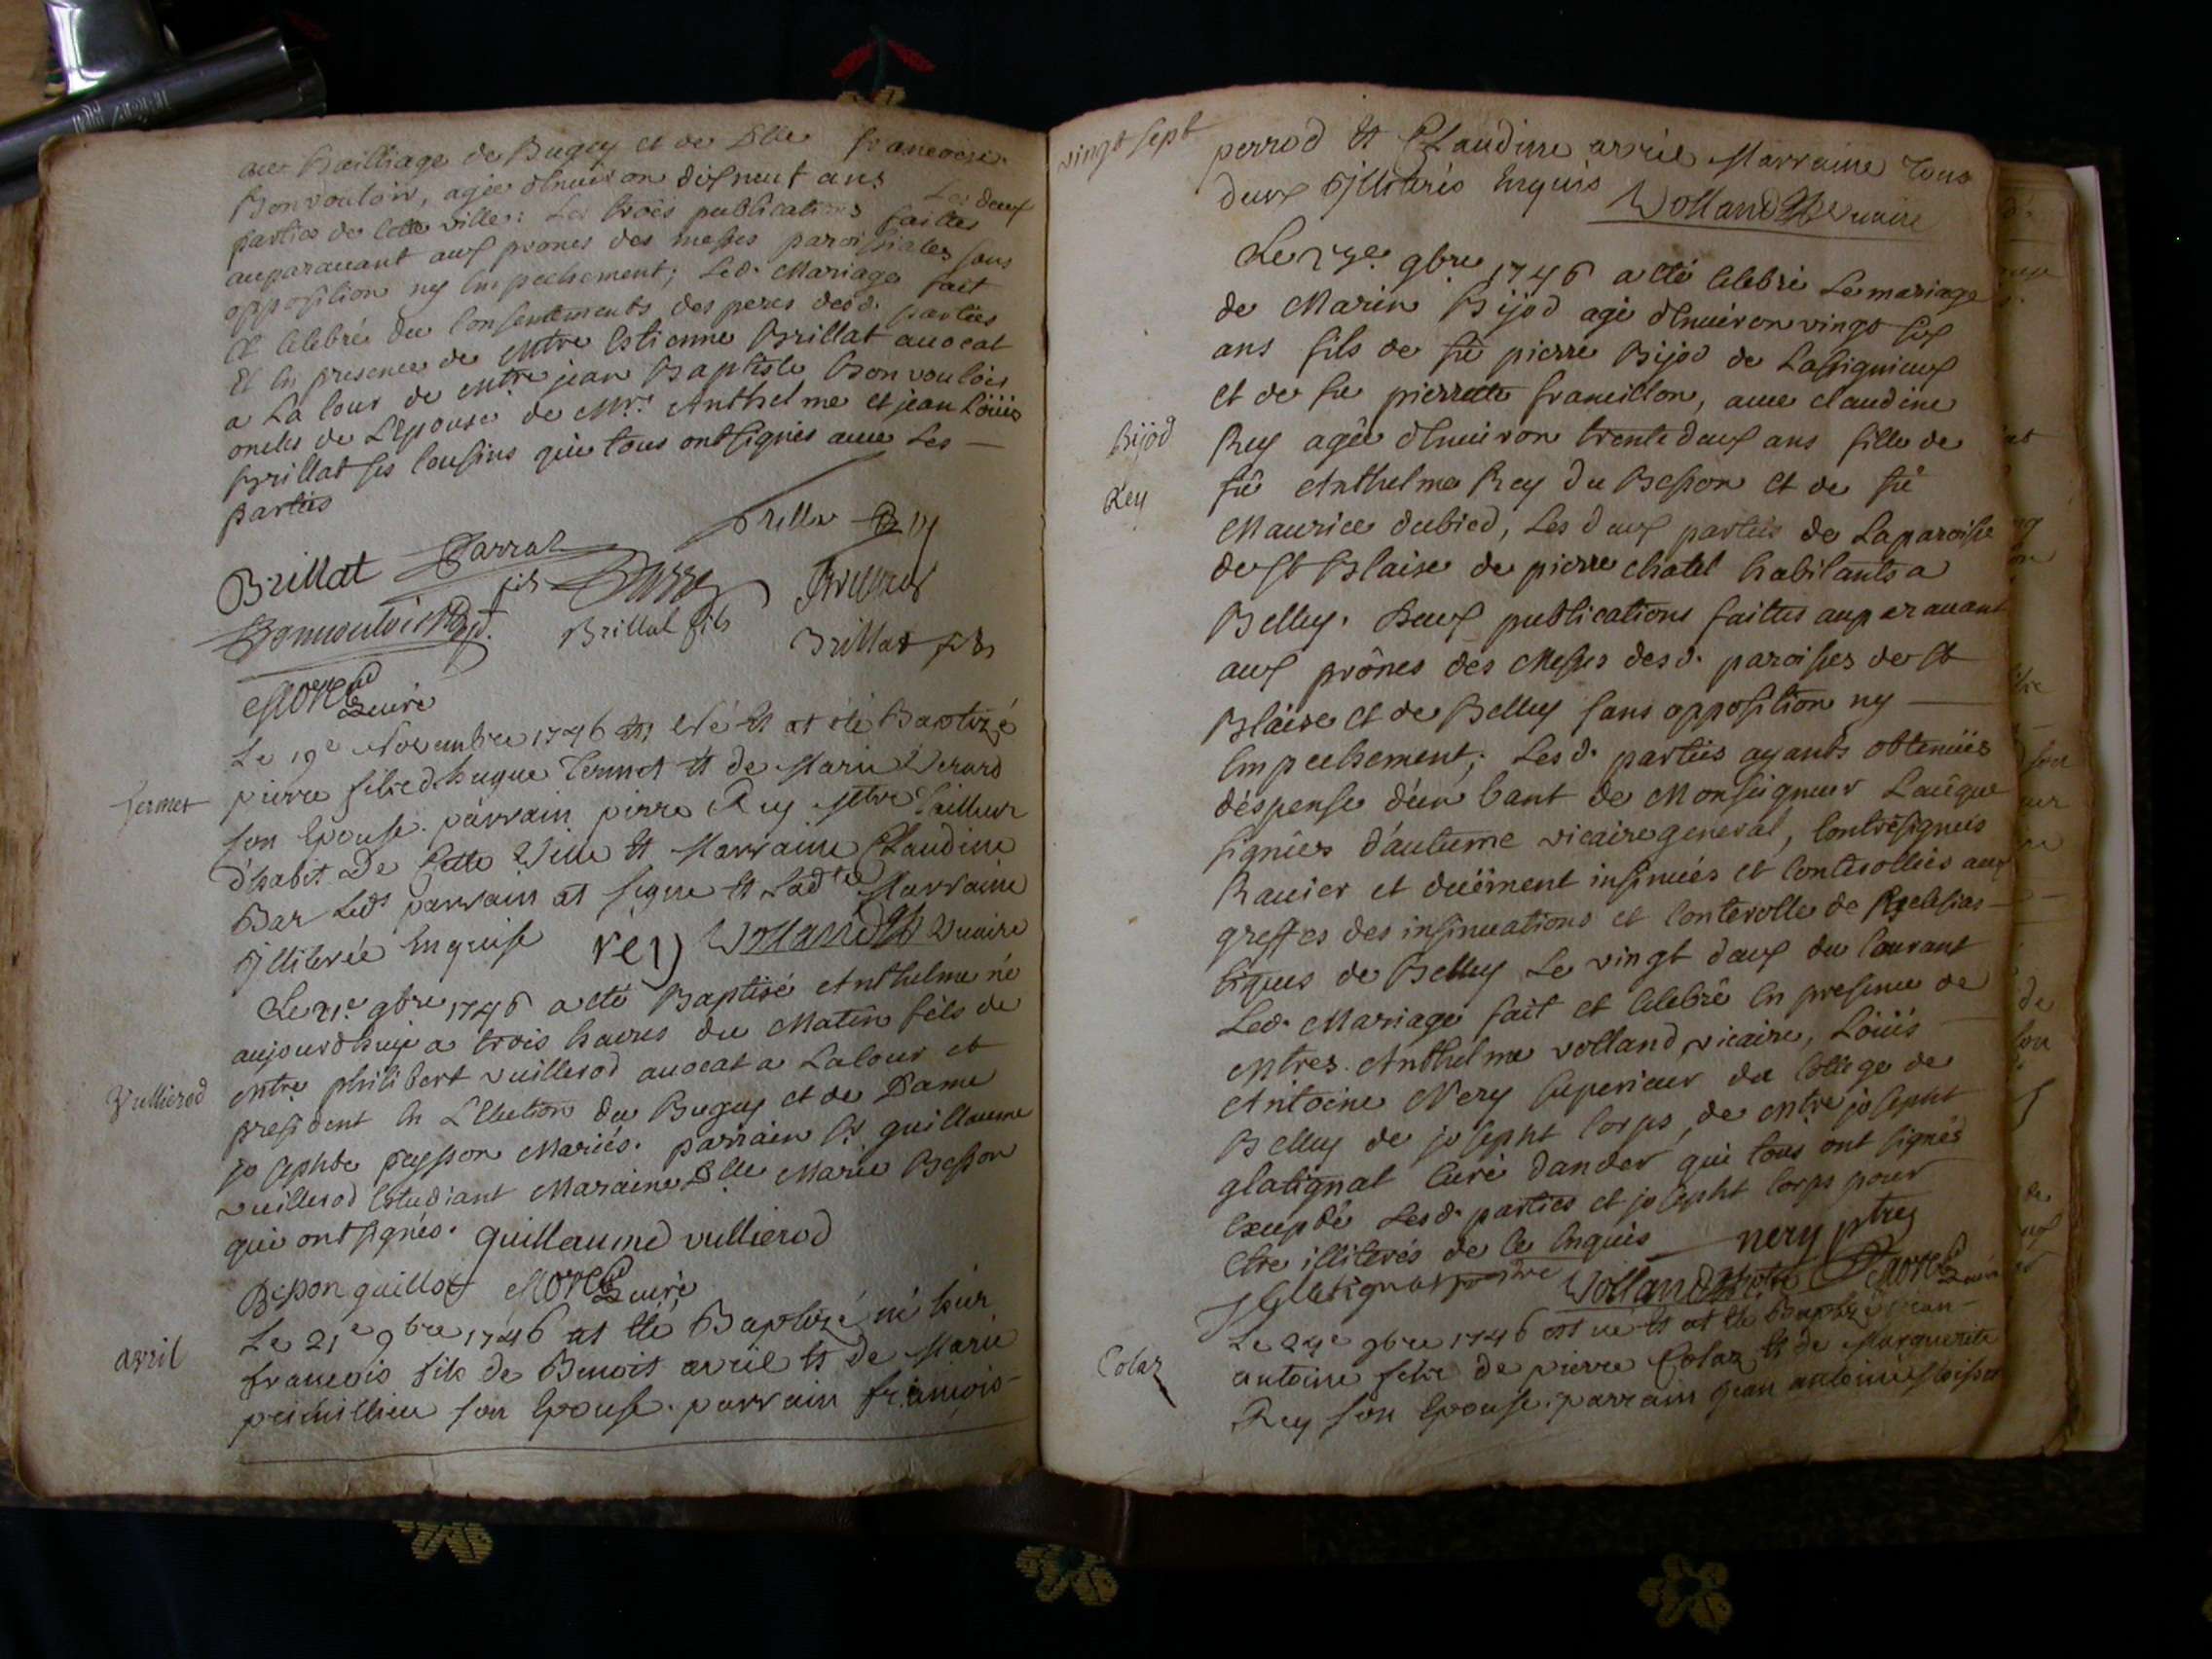 aux Bailliage de Bugey et de Dlle francoise
Bonvouloir, agée denuiron dixneuf ans Les deux
parties de cette ville: Les trois publications faittes
auparauant aux prones des messes paroissiales sans
opposition ny Empechement; Led. Mariage fait
et celebré du Consentements des peres desd. parties
Et En presence de Mtre Estienne Brillat auocat
a La Cour de Mtre jean Baptiste Bonvouloir
oncles de L'epouse de Mrs. Anthelme et jean Loüis
Brillat ses Cousins qui tous ont signés auec Les —
parties
Brillat Parrat
fils
Bonvouloir Brillat fils Brillat fils
Morel Curé
Le 19e Novembre 1746 Est Né Et at été Baptizé
fermet
pierre fils d. hugue fermet Et de Marie Verard
son Epouse. parrain pierre Rey Mtre Tailleur
d'habit De Cette Ville Et Marraine Claudine
Bar Ledt parrain at signe Et Ladte Marraine
Jlliterée Enquise rey Volland Vicaire
Le 21e 9bre 1746 a eté Baptisé Anthelme né
aujourdhuy a trois heures du Matin fils de
Vullierod
Mtre philibert vuillerod auocat a La Cour et
president En L'Election du Bugey et de Dame
josephte peysson Mariés. parrain Sr guillaume
vuillerod Estudiant Maraine Dlle Marie Besson
qui ont signés. guillaume vullierod
Besson guillot Morel Curé
Le 21e 9bre 1746 at été Baptizé né hier
avril
francois fils de Benoit avril Et de Marie
son Epouse. parrain francois
vingt sept
perrod Et Claudine avril Marraine Tous
deux Jlliterés Enquis Volland Vicaire
Le 9bre 1746 a eté Celebré Le mariage
de Marin Bijod agé denuiron vingt six
ans fils de fû pierre Bijod de Lassignieux
et de fû pierrette francillon, auec claudine
Bijod
Rey agée denuiron trente deux ans fille de
Rey
fû Anthelme Rey du Besson et de fû
Maurice dubied, Les deux parties de La paroisse
de St Blaise de pierre chatel habitants a
Belley. Deux publications faittes auparauant
aux prônes des Messes desd. paroisses de St
Blaise et de Belley sans opposition ny —
Empechement; Lesd. parties ayants obtenües
dépense d'un bant de Monseigneur L'auêque
signées d'autume vicaire general, Contresignées
Rauier et duëment insinuées et Conterollées aux
greffes des insinuations et Conterolle de Ecclesias-
tiques de Belley Le vingt deux du Courant
Led. Mariage fait et Celebré En presence de
Mtres. Anthelme volland vicaire, Loüis —
Antoine Nery superieur du College de
Belley de josepht Corps, de Mtre josepht
glatignat Curé dandert qui tous ont signés
Excepté Lesd. parties et josepht Corps pour
Etre illiterés de ce Enquis nery ptre
Glatignat Volland Morel Curé
Le 24e 9bre 1746 est né Et at été Baptizé jean-
Colaz
antoine fils de pierre Colaz Et de Marguerite
Rey son Epouse. parrain jean antoine